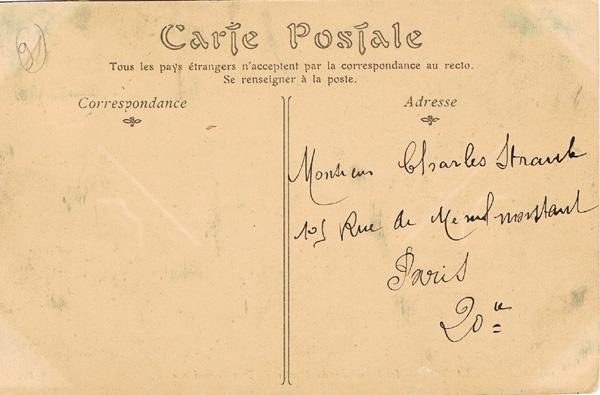 91
Carte Postale
Tous les pays étrangers n'acceptent par la correspondance au recto.
Se renseigner à la poste.
Correspondance
Adresse
Monsieur Charles
105 Rue de Menilmontant
Paris
20e